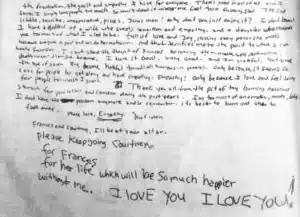 the frustration, the guilt and empathy I have for everyone. There's good in all of us and I
I have a goddess of a wife who sweats ambition and empathy and a daughter who reminds
me too much of what I used to be. full of love and Joy, kissing every person she meets because
everyone is good and will do her no harm. And that terrifies me to the point to where I can
barely function. I can't stand the thought of Frances becoming the miserable, self destructive
death rocker that I've become. I have it Good, very Good. and I'm grateful, but since
the age of seven I've become hateful towards all humans in general. Only because it seems so
easy for people to get along and have empathy. Empathy! Only because I love and feel sorry
for people too much I guess. Thank you all from the pit of my burning nauseous
stomach for your letters and concern during the past years. I'm too much of an erratic, moody, baby!
I don't have the passion anymore and so remember, its better to burn out than to
fade away. Peace, Love, Empathy. Kurt Cobain
Frances and Courtney, I'll be at your altar.
please keep going Courtney
for Frances
for her life which will be so much happier
without me..
I LOVE YOU I LOVE YOU!